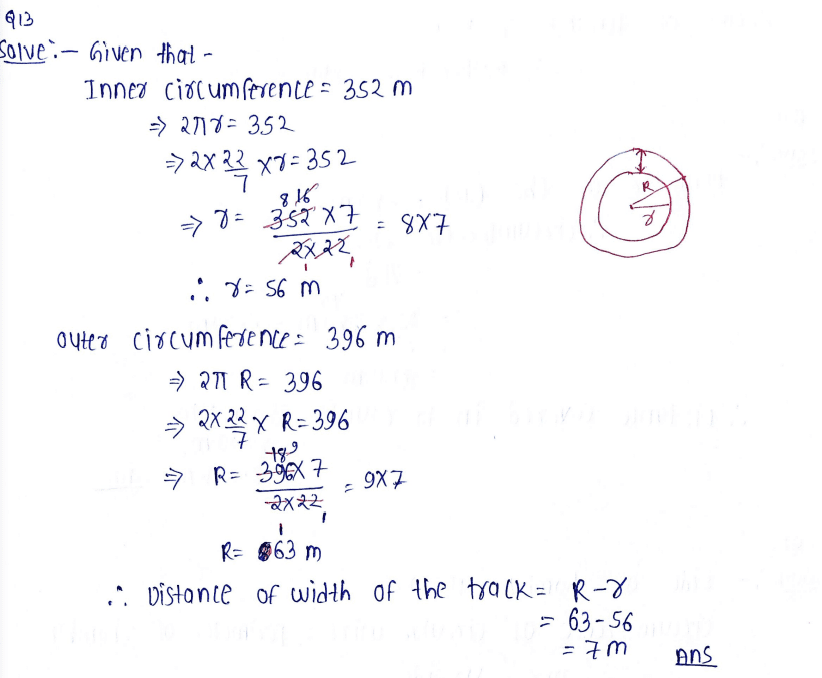 Q13
Solve :- Given that -
Inner circumference = 352 m
⇒ 2πr = 352
⇒ 2 × 22/7 × r = 352
8 16
⇒ r = 352 × 7 / 2 × 22 = 8 × 7
1 1
∴ r = 56 m
R
r
outer circumference = 396 m
⇒ 2π R = 396
⇒ 2 × 22/7 × R = 396
18 9
⇒ R = 396 × 7 / 2 × 22 = 9 × 7
1 1
R = 63 m
∴ Distance of width of the track = R - r
= 63 - 56
= 7 m ANS